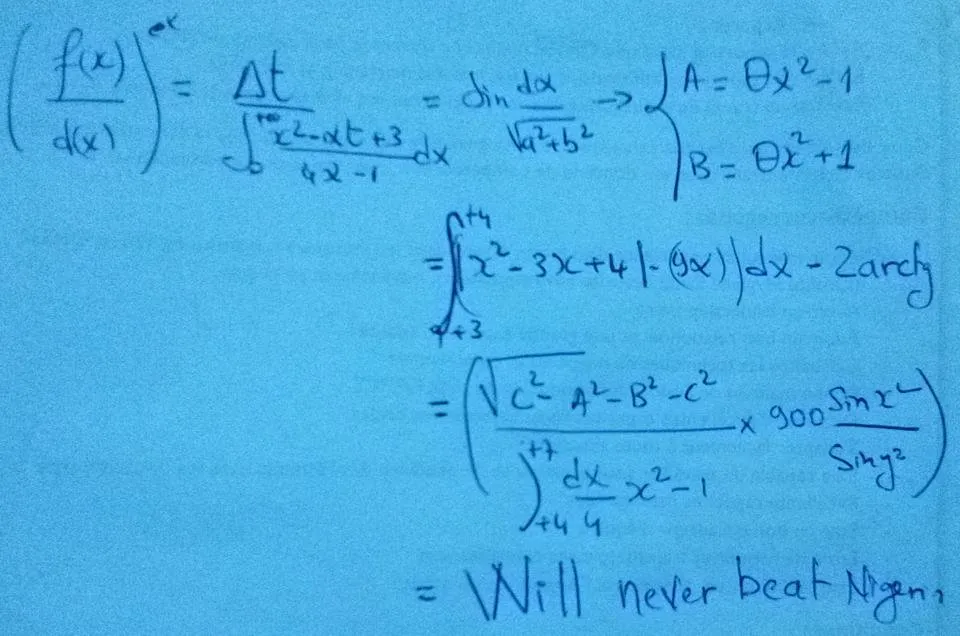 (f(x)/d(x))^ex = Δt / ∫₀^+∞ (x²-αt+3)/(4x-1) dx = sin dα/√(a²+b²) → { A = θx²-1
B = θx²+1
= ∫₊₃^+4 |x²-3x+4|-(9x)|dx - 2arctg
= (√(C²-A²-B²-C²) / ∫₊₄^+7 dx/4 x²-1 × 900 Sinx²/Siny²)
= Will never beat